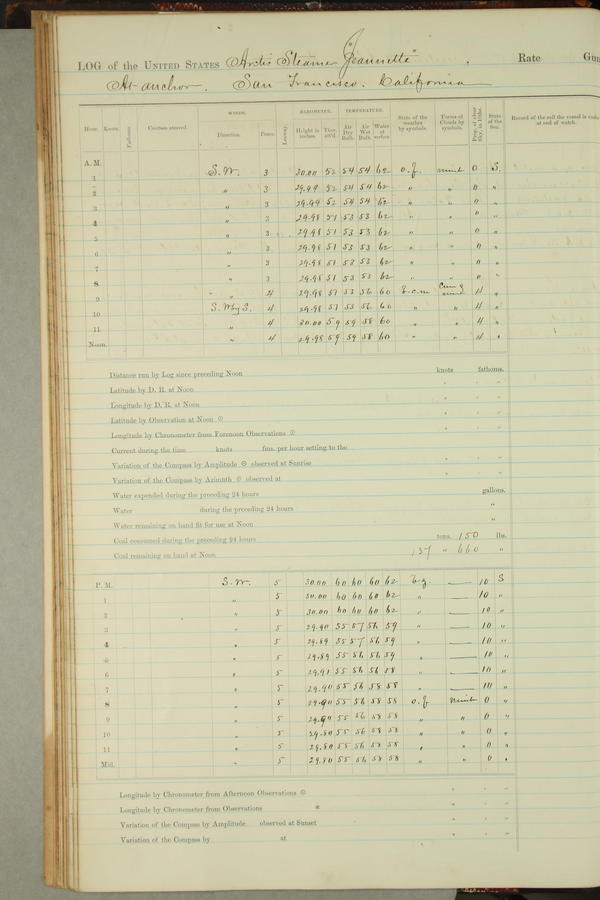 LOG of the UNITED STATES Arctic Steamer "Jeannette", Rate Gun
At anchor. San Francisco. California
WINDS. BAROMETER. TEMPERATURE.
Hour. Knots. Fathoms. Courses steered. Direction. Force. Leeway. Height in inches. Ther. att'd. Air Dry Bulb. Air Wet Bulb. Water at surface. State of the weather by symbols. Forms of Clouds by symbols. Prop. of clear Sky, in 10ths. State of the Sea. Record of the sail the vessel is under at end of watch.
A. M.
1 S.W. 3 30.00 52 54 54 62 o.f. nimb 0 S.
2 " 3 29.99 52 54 54 62 " " 0 "
3 " 3 29.99 52 54 54 62 " " 0 "
4 " 3 29.98 51 53 53 62 " " 0 "
5 " 3 29.98 51 53 53 62 " " 0 "
6 " 3 29.98 51 53 53 62 " " 0 "
7 " 3 29.98 51 53 53 62 " " 0 "
8 " 3 29.98 51 53 53 62 " " 0 "
9 " 4 29.98 57 53 56 60 b.c.m Cum & nimb 4 "
10 S.W by S. 4 29.98 57 53 56 60 " " 4 "
11 " 4 30.00 59 59 58 60 " " 4 "
Noon. " 4 29.98 59 59 58 60 " " 4 "
Distance run by Log since preceding Noon knots fathoms.
Latitude by D. R. at Noon " " "
Longitude by D. R. at Noon " " "
Latitude by Observation at Noon " " "
Longitude by Chronometer from Forenoon Observations " " "
Current during the time knots fms. per hour setting to the
Variation of the Compass by Amplitude observed at Sunrise " " "
Variation of the Compass by Azimuth observed at " " "
Water expended during the preceding 24 hours gallons.
Water during the preceding 24 hours "
Water remaining on hand fit for use at Noon "
Coal consumed during the preceding 24 hours tons. 150 lbs.
Coal remaining on hand at Noon 137 " 660 "
P. M. S.W. 5 30.00 60 60 60 62 b.z. — 10 S
1 " 5 30.00 60 60 60 62 " — 10 "
2 " 5 30.00 60 60 60 62 " — 10 "
3 " 5 29.90 55 57 56 59 " — 10 "
4 " 5 29.89 55 57 56 59 " — 10 "
5 " 5 29.89 55 56 56 59 " — 10 "
6 " 5 29.91 55 56 56 58 " — 10 "
7 " 5 29.90 55 56 58 58 " — 10 "
8 " 5 29.90 55 56 58 58 o.f nimb 0 "
9 " 5 29.90 55 56 58 58 " " 0 "
10 " 5 29.80 55 56 58 58 " " 0 "
11 " 5 29.80 55 56 58 58 " " 0 "
Mid. " 5 29.80 55 56 58 58 " " 0 "
Longitude by Chronometer from Afternoon Observations " " "
Longitude by Chronometer from Observations * " " "
Variation of the Compass by Amplitude observed at Sunset " " "
Variation of the Compass by at " " "